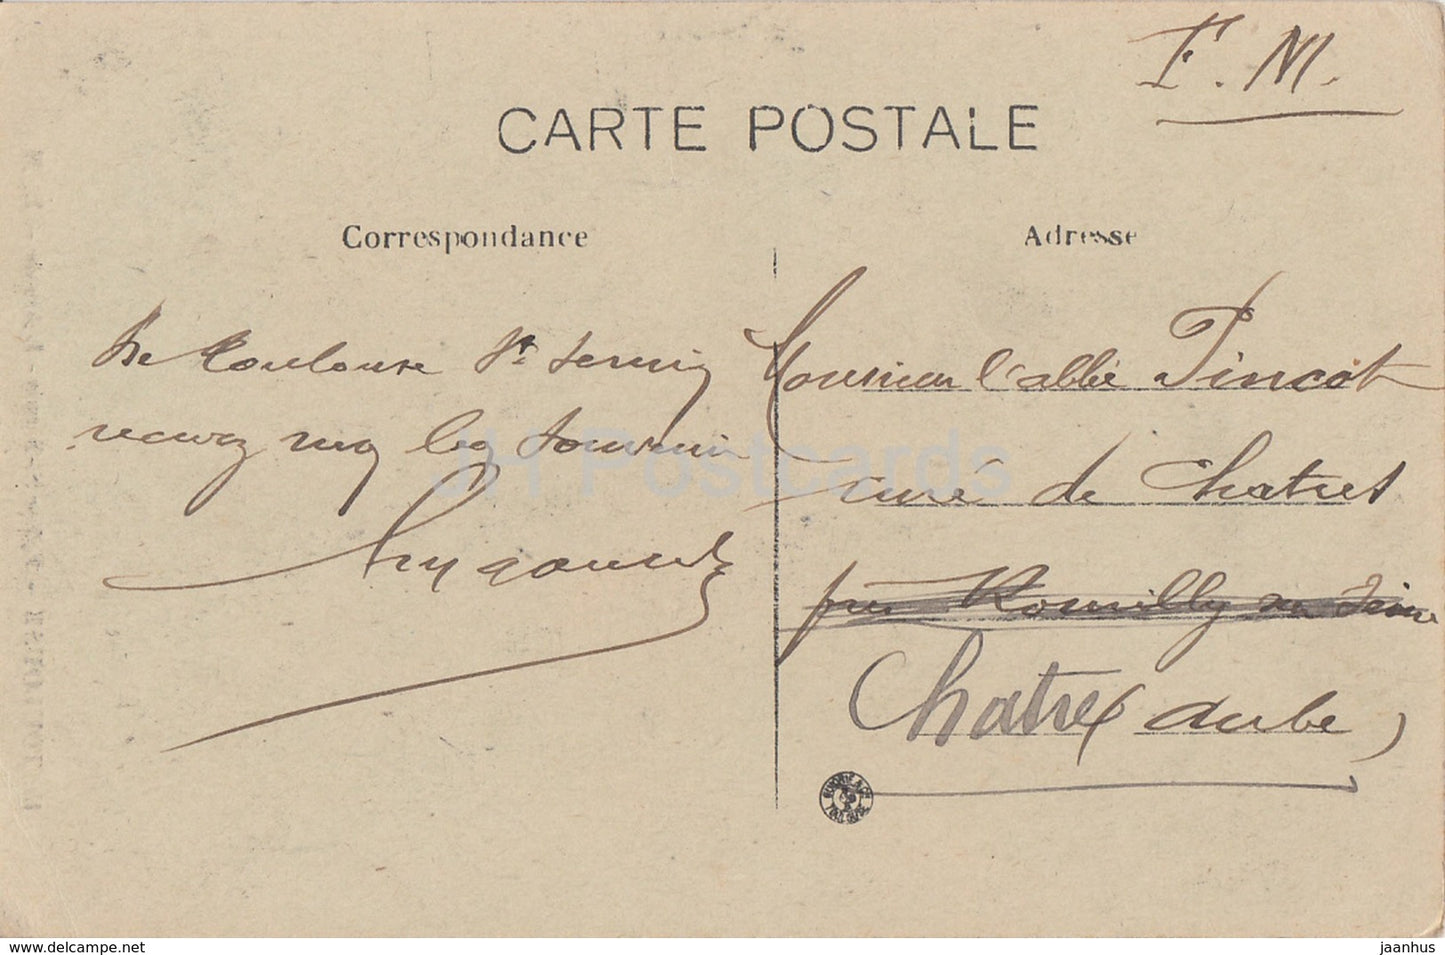 F. M.
CARTE POSTALE
Correspondance
Adresse
De Toulouse St Sernin
recevez mon bon souvenir
Monsieur l'abbé Pincot
curé de Chatres
près Romilly sur Seine
Chatres (Aube)
JH Postcards
www.delcampe.net
jaanhus